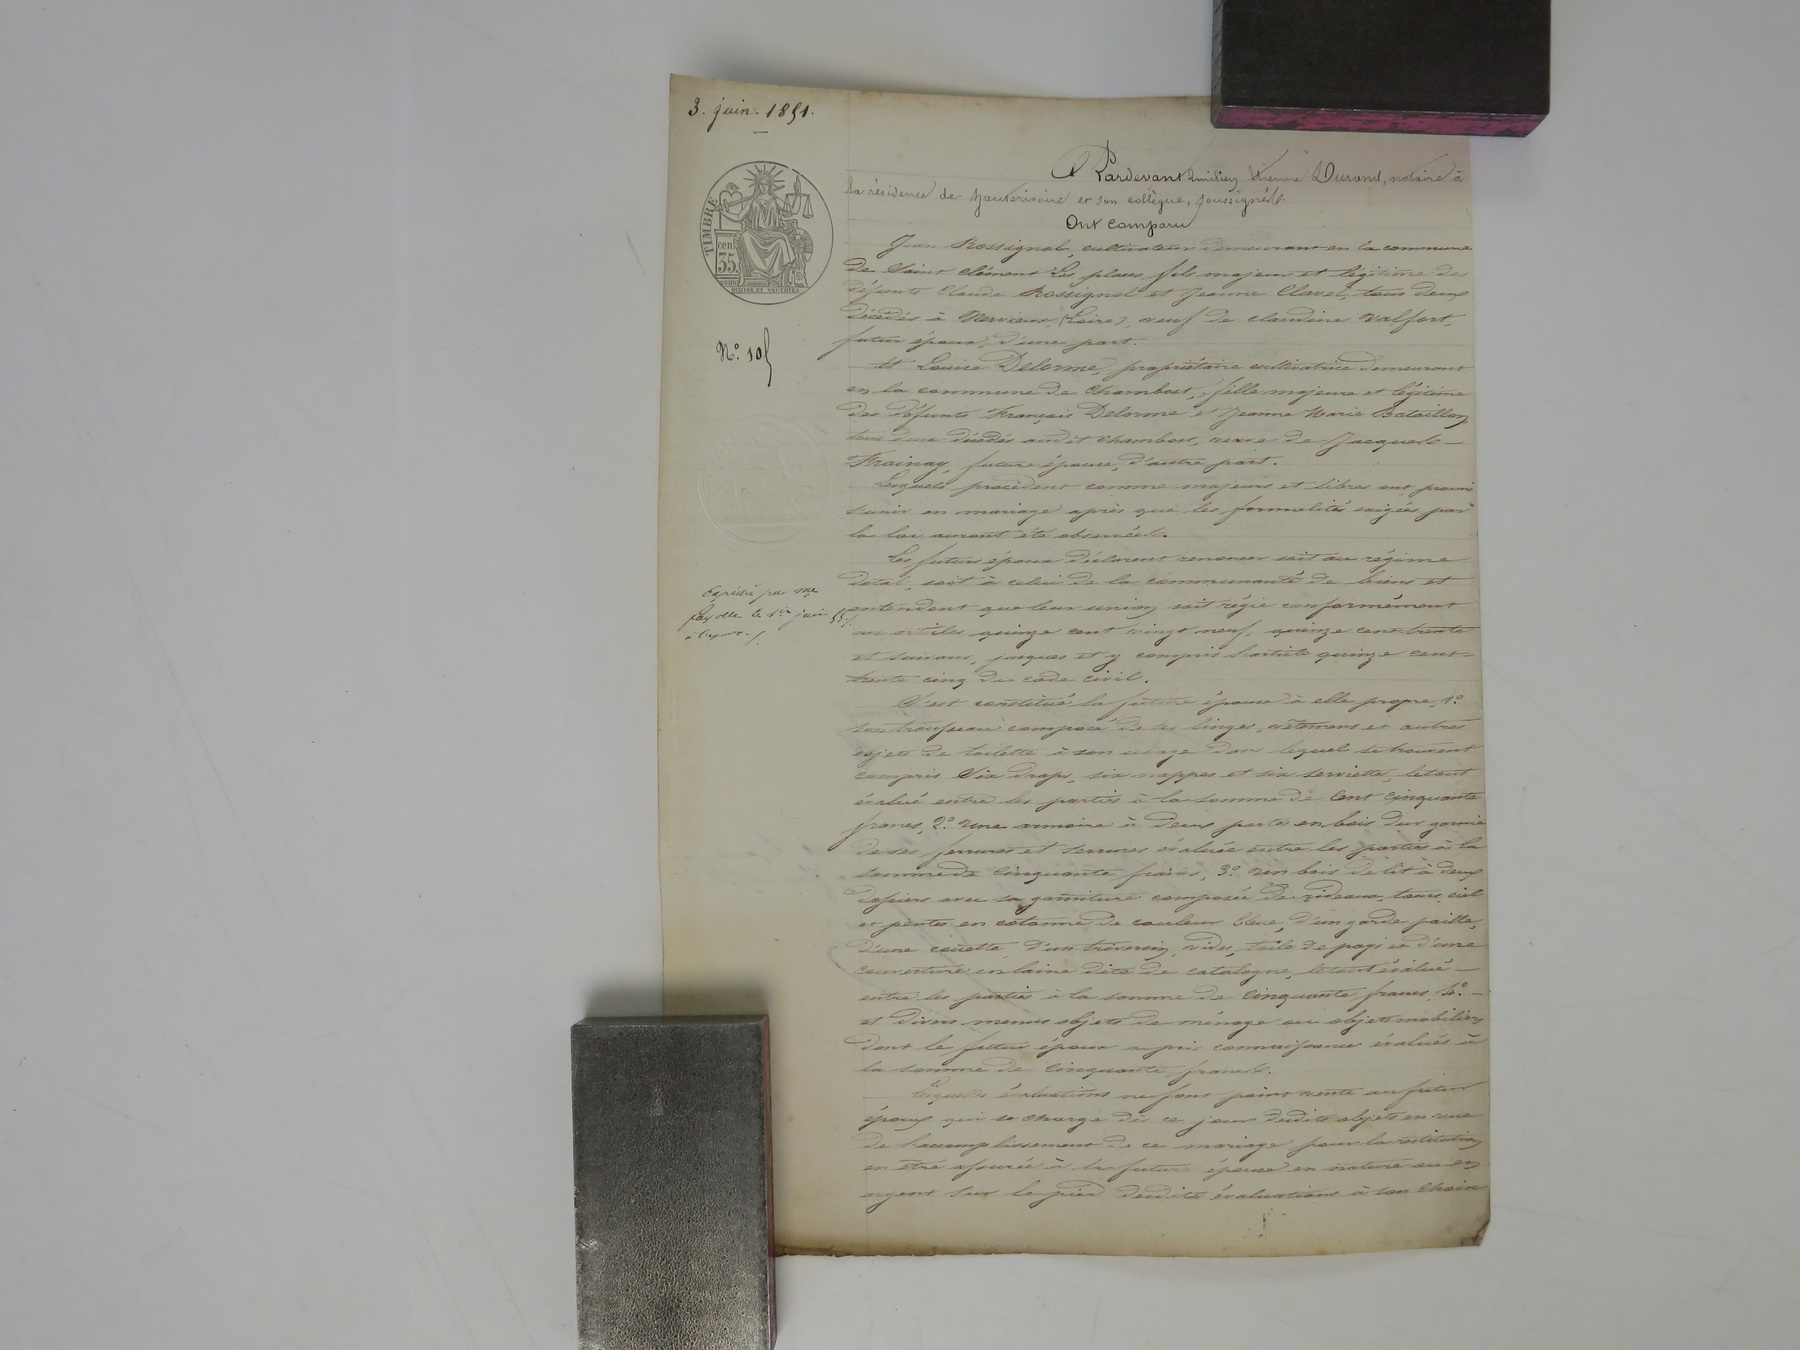 3. juin - 1851.
Pardevant Emilien Etienne Durand, notaire à
la résidence de hauterivoire et son collègue, soussignés
Ont comparu
TIMBRE
cen.
35
N.o 105
Jean Rossignol, cultivateur demeurant en la commune
de Saint Clément les places, fils majeur et légitime des
défunts Claude Rossignol et Jeanne Clavel, tous deux
décédés à Nervieux (Loire), veuf de claudine Valfort,
futur époux, d'une part.
Et Louise Delorme, propriétaire cultivatrice demeurant
en la commune de Chambost, fille majeure et légitime
des défunts François Delorme et Jeanne Marie Bataillon
tous deux décédés audit Chambost, veuve de Jacques
future épouse, d'autre part.
Lesquels procédent comme majeurs et libres ont promis
s'unir en mariage après que les formalités exigées par
la loi auront été observées.
Les futurs époux déclarent renoncer soit au régime
dotal, soit à celui de la communauté de biens et
entendent que leur union soit régie conformément
aux articles quinze cent vingt neuf, quinze cent trente
et suivans, jusques et y compris l'article quinze cent
trente cinq du code civil.
Expédié par me
fayolle le juin 55
S'est constitué la future épouse à elle propre, 1.o
son trousseau composé de ses linges, vêtemens et autres
objets de toilette à son usage dans lequel se trouvent
compris Six draps, six nappes et six serviettes, letout
évalué entre les parties à la somme de Cent cinquante
francs, 2.o Une armoire à deux portes en bois dur garnie
de ses ferrures et serrures évaluée entre les parties à la
somme de Cinquante francs, 3.o un bois de lit à deux
dossiers avec sa garniture composée de rideaux, tours, ciel
et pentes en cotonne de couleur bleue, d'un garde paille,
d'une couette, d'un traversin, vides, toile de pays et d'une
couverture en laine dite de catalogne, letout évalué
entre les parties à la somme de Cinquante francs, 4.o
et divers menus objets de ménage ou objets mobiliers
dont le futur époux a pris connaissance évalués à
la somme de Cinquante francs.
Lesquelles évaluations ne font point vente au futur
époux qui se charge dès ce jour desdits objets en vue
de l'accomplissement de ce mariage pour la restitution
en être assurée à la future épouse en nature ou en
argent sur le pied desdites évaluations à son choix